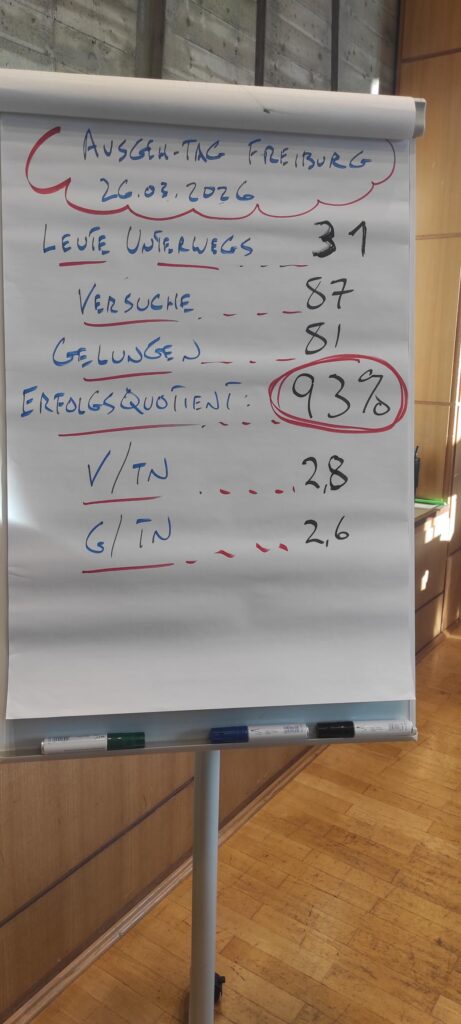 AUSGEH-TAG FREIBURG
26.03.2026
LEUTE UNTERWEGS 31
VERSUCHE 87
GELUNGEN 81
ERFOLGSQUOTIENT: 93%
V/TN 2,8
G/TN 2,6